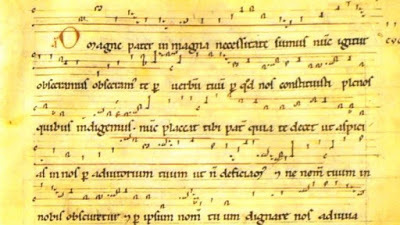 O magne pater in magna necessitate sumus nūc igitur
obsecramus obsecram' te ꝑ verbū tuū ꝑ qd̄ nos constituisti plenos
quibus indigemus nūc placeat tibi pat̄ quia te decet ut aspici
as in nos ꝑ adiutorium tuum ut n̄ deficiam' ⁊ ne nom̄ tuum in
nobis obscuretur ⁊ ꝑ ipsum nom̄ tuum dignare nos adiuua